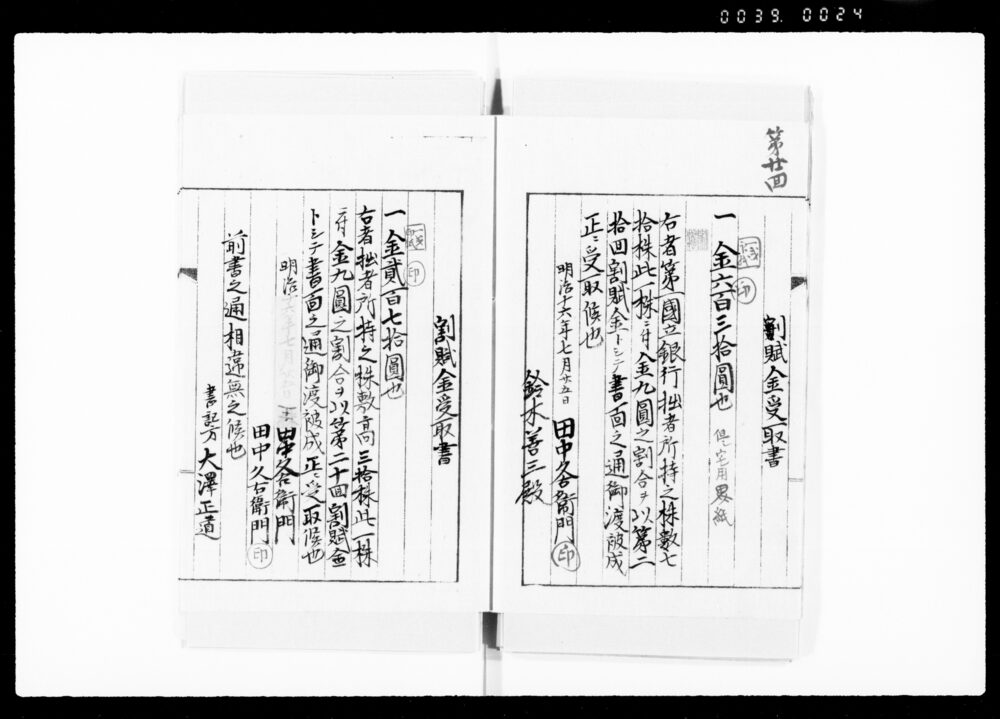 0039. 0024
第廿回
割賦金受取書
一金六百三拾圓也 但シ宅用罫紙
印
右者第一國立銀行拙者所持之株数七
拾株此一株ニ付金九圓之割合ヲ以第二
拾回割賦金トシテ書面之通御渡被成
正ニ受取候也
明治十六年七月廿五日 田中久右衛門 印
鈴木善三殿
割賦金受取書
一金貳百七拾圓也
印
右者拙者所持之株敷高三拾株此一株
ニ付金九圓之割合ヲ以第二十回割賦金
トシテ書面之通御渡被成正ニ受取候也
明治十六年七月 田中久右衛門
田中久右衛門 印
前書之通相違無之候也
書記方 大澤正道